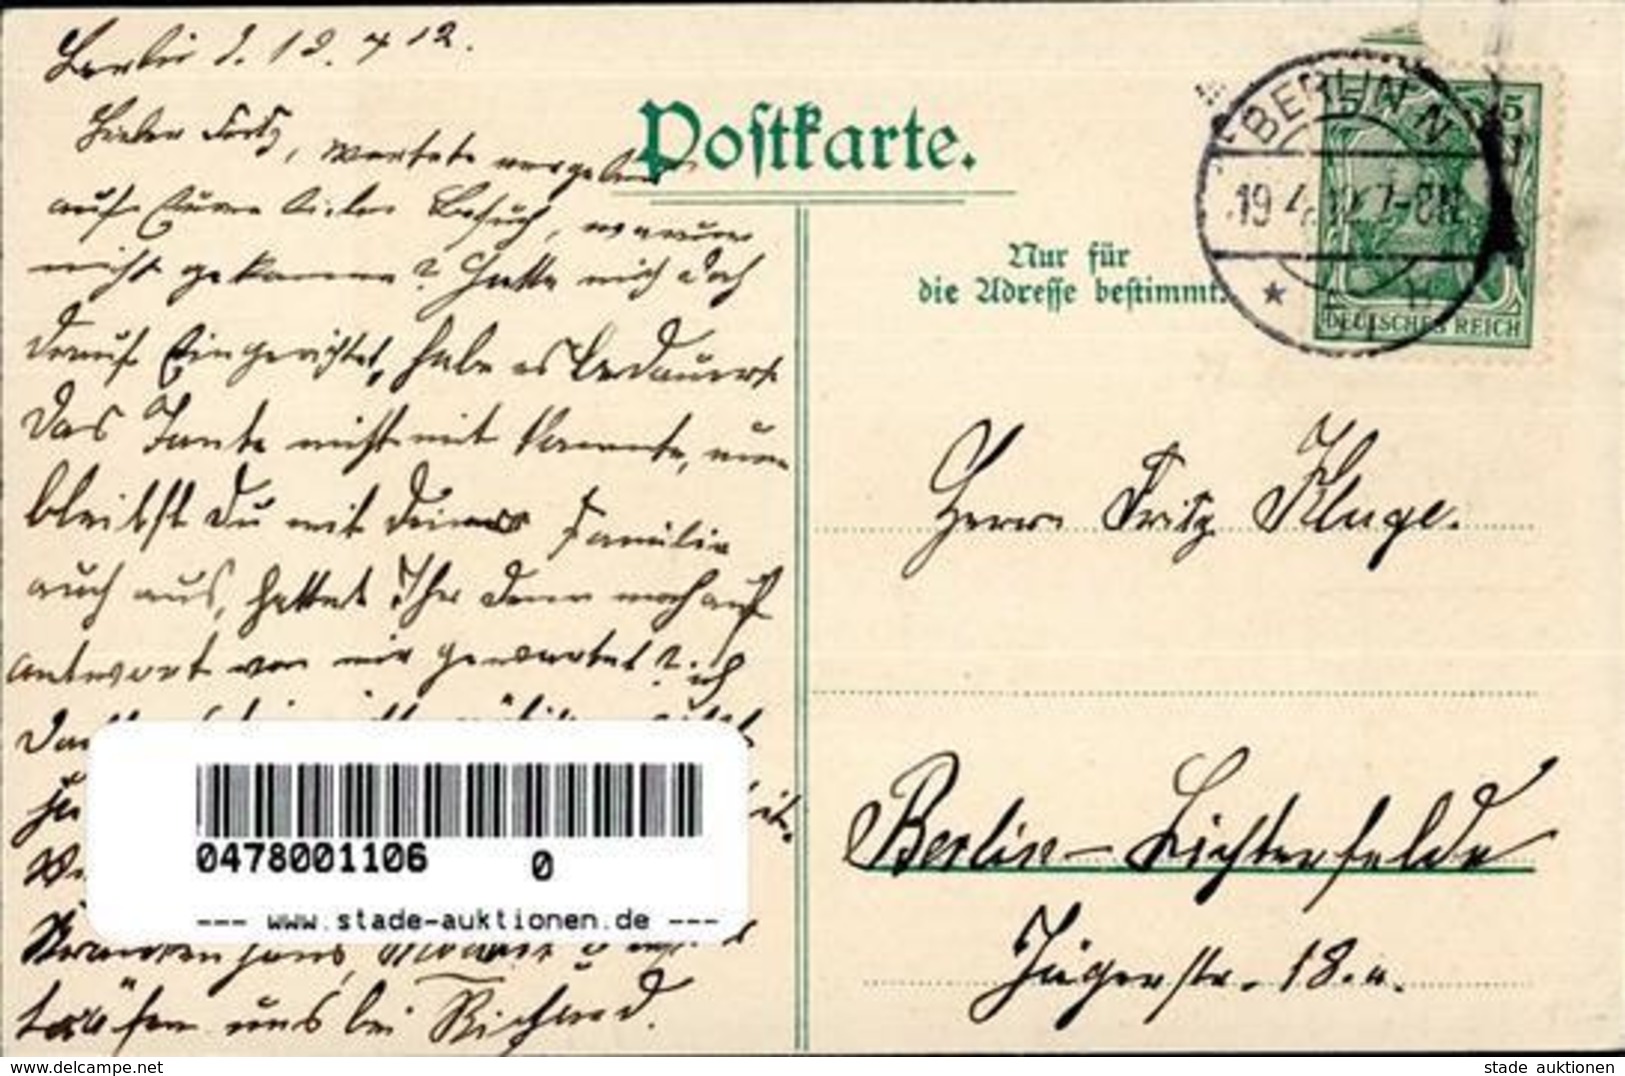 Berlin d. 19. 4 12.
Lieber Fritz, wartete vergebens
auf Euren lieben Besuch, warum
nicht gekommen? Hatte mich doch
drauf Eingerichtet, habe es bedauert
das Tante nicht mit konnte, nun
bleibst Du mit Deiner Familie
auch aus, hattet Ihr denn noch auf
antwort von mir gewartet? ich
Krankenhaus, Moabit
treffen uns bei Richard.
Postkarte.
Nur für
die Adresse bestimmt.
BERLIN N
19 4 12 7-8N
* 31
5
DEUTSCHES REICH
Herrn Fritz Kluge.
Berlin-Lichterfelde
Jägerstr. 18.a.
0478001106 0
--- www.stade-auktionen.de ---
delcampe.net
stade auktionen